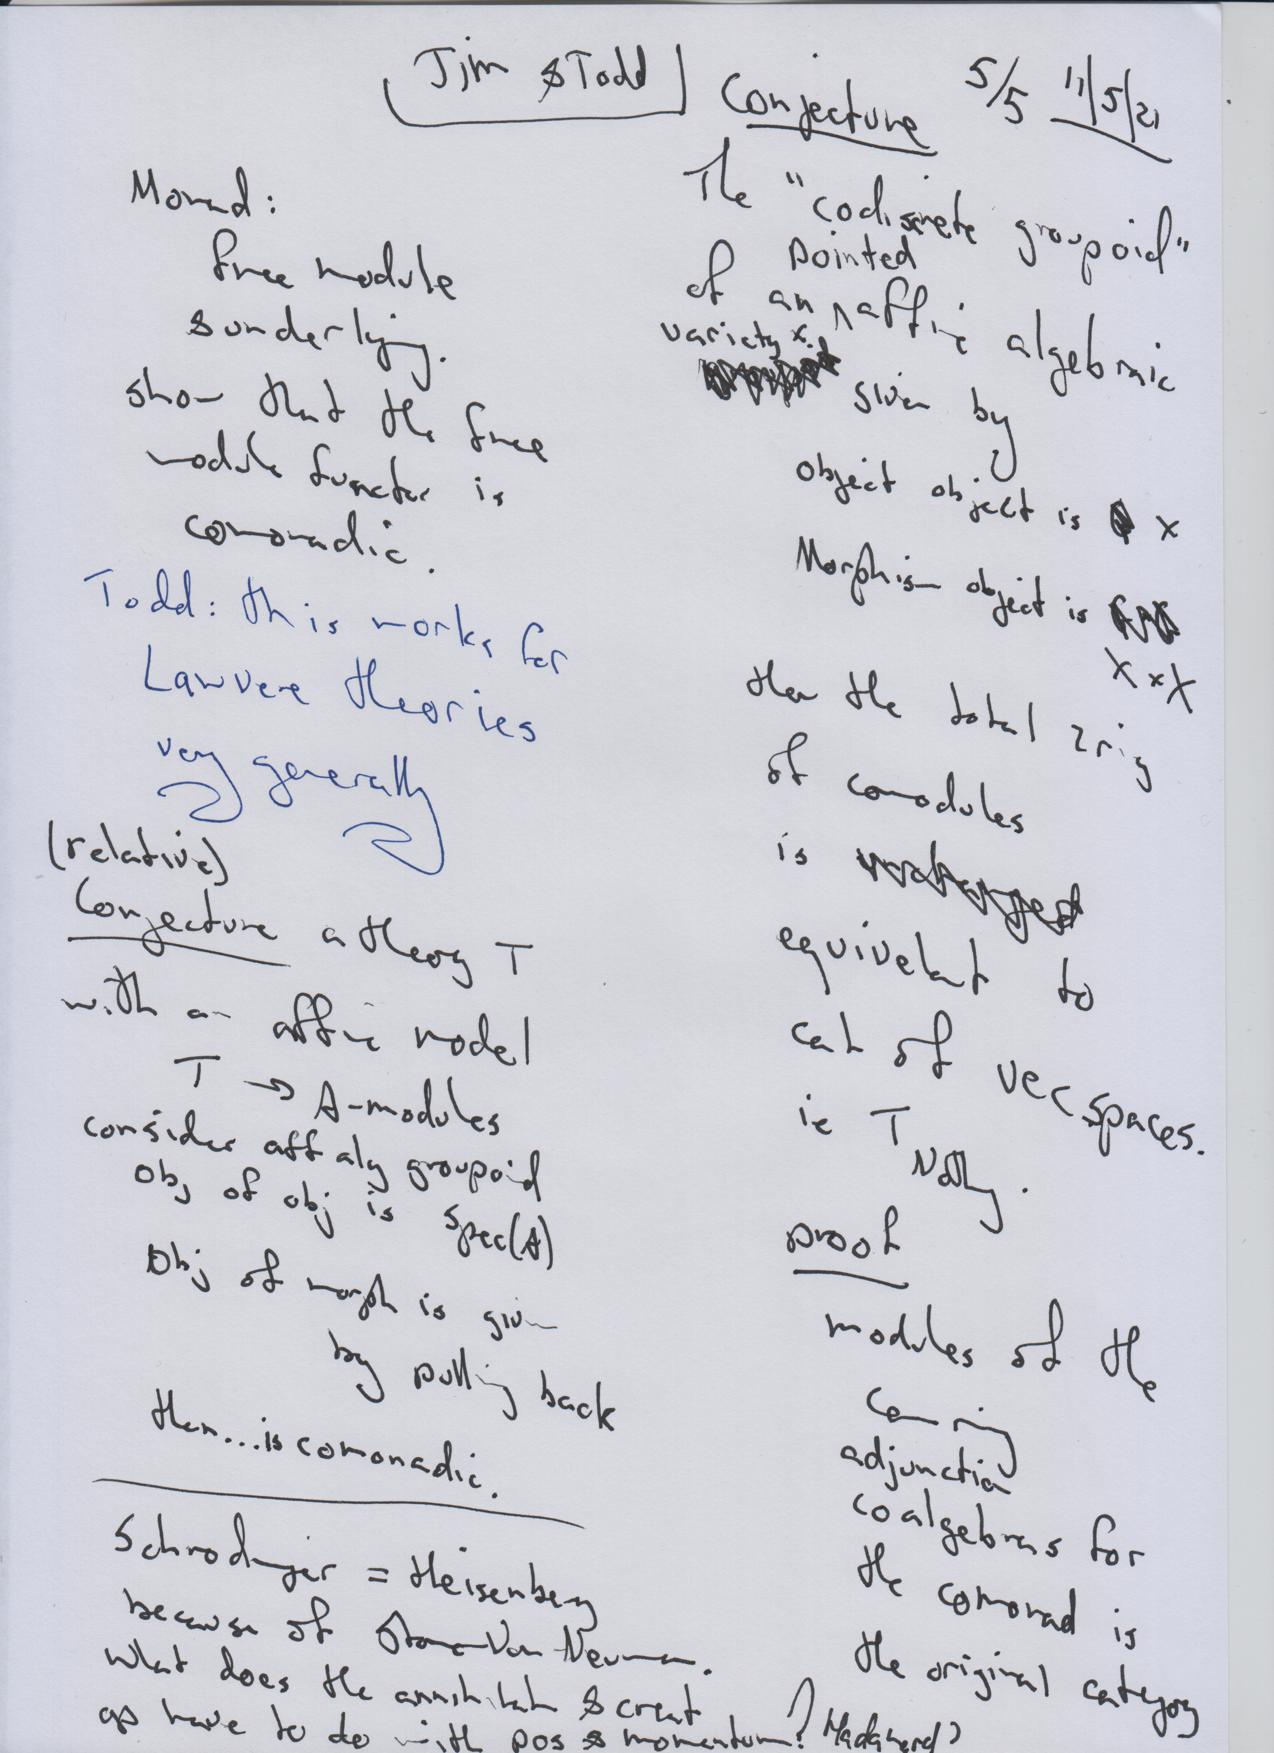 Jim & Todd
5/5 11/5/21
Monad:
free module
& underlying.
show that the free
module functor is
comonadic.
Todd: this works for
Lawvere theories
very generally
(relative)
Conjecture a theory T
with an affine model
T → A-modules
consider aff alg groupoid
Obj of obj is spec(A)
Obj of morph is given
by pulling back
then...is comonadic.
Schrodinger = Heisenberg
because of Stone Von Neuman.
What does the annihilat & creat
ops have to do with pos & momentum?
Conjecture
The "codiscrete groupoid"
of an pointed affine algebraic
variety x.
given by
object object is x
Morphism object is
X x X
then the total 2rig
of comodules
is
equivelant to
cat of vec spaces.
ie T
proof
modules of the
coring
adjunction
coalgebras for
the comonad is
the original category